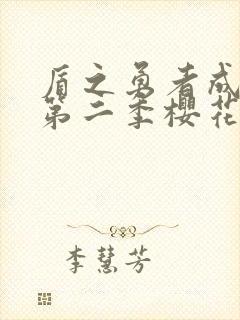 盾之勇者成
第二季櫻花
李慧芳